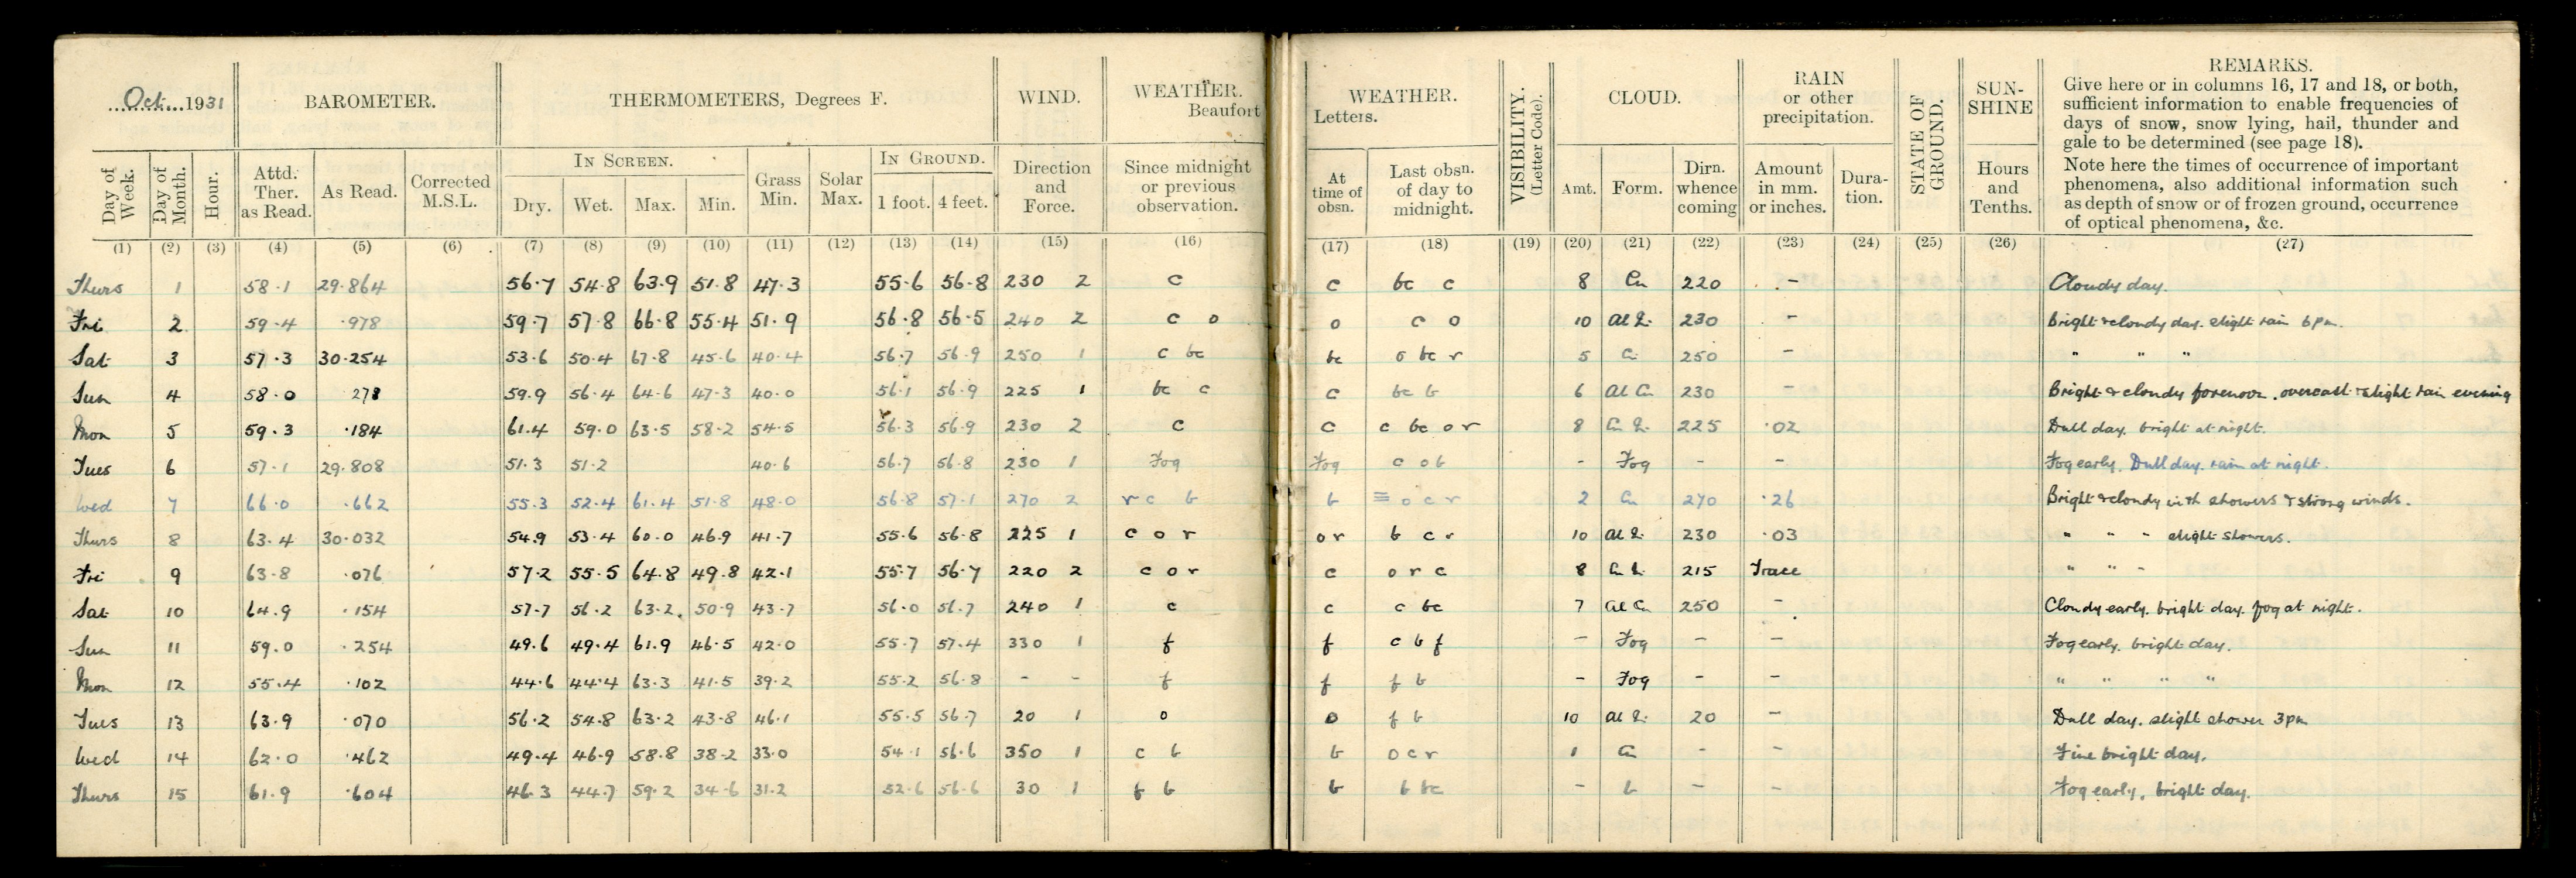 Oct. 1931
BAROMETER.
THERMOMETERS, Degrees F.
WIND.
WEATHER.
Beaufort
WEATHER.
Letters.
VISIBILITY.
(Letter Code).
CLOUD.
RAIN
or other
precipitation.
STATE OF
GROUND.
SUN-
SHINE
REMARKS.
Give here or in columns 16, 17 and 18, or both,
sufficient information to enable frequencies of
days of snow, snow lying, hail, thunder and
gale to be determined (see page 18).
Note here the times of occurrence of important
phenomena, also additional information such
as depth of snow or of frozen ground, occurrence
of optical phenomena, &c.
Day of
Week.
Day of
Month.
Hour.
Attd.
Ther.
as Read.
As Read.
Corrected
M.S.L.
IN SCREEN.
Dry. Wet. Max. Min.
Grass
Min.
Solar
Max.
IN GROUND.
1 foot. 4 feet.
Direction
and
Force.
Since midnight
or previous
observation.
At
time of
obsn.
Last obsn.
of day to
midnight.
Amt. Form.
Dirn.
whence
coming
Amount
in mm.
or inches.
Dura-
tion.
Hours
and
Tenths.
(1) (2) (3) (4) (5) (6) (7) (8) (9) (10) (11) (12) (13) (14) (15) (16) (17) (18) (19) (20) (21) (22) (23) (24) (25) (26) (27)
Thurs 1 58.1 29.864 56.7 54.8 63.9 51.8 47.3 55.6 56.8 230 2 c c bc c 8 Cu 220 - Cloudy day.
Fri 2 59.4 .978 59.7 57.8 66.8 55.4 51.9 56.8 56.5 240 2 c o o c o 10 Al S. 230 - Bright & cloudy day. slight rain 6pm.
Sat 3 57.3 30.254 53.6 50.4 67.8 45.6 40.4 56.7 56.9 250 1 c bc bc o bc r 5 Ci 250 - " " "
Sun 4 58.0 278 59.9 56.4 64.6 47.3 40.0 56.1 56.9 225 1 bc c c bc b 6 Al Cu 230 - Bright & cloudy forenoon. overcast & slight rain evening
Mon 5 59.3 .184 61.4 59.0 63.5 58.2 54.5 56.3 56.9 230 2 c c c bc o r 8 Cu S. 225 .02 Dull day. bright at night.
Tues 6 57.1 29.808 51.3 51.2 40.6 56.7 56.8 230 1 Fog Fog c o b - Fog - - Fog early. Dull day. rain at night.
Wed 7 66.0 .662 55.3 52.4 61.4 51.8 48.0 56.8 57.1 270 2 r c b b ≡ o c r 2 Cu 270 .26 Bright & cloudy with showers & strong winds.
Thurs 8 63.4 30.032 54.9 53.4 60.0 46.9 41.7 55.6 56.8 225 1 c o r o r b c r 10 Al S. 230 .03 " " " slight showers.
Fri 9 63.8 .076 57.2 55.5 64.8 49.8 42.1 55.7 56.7 220 2 c o r c o r c 8 Cu S. 215 Trace " " "
Sat 10 64.9 .154 57.7 56.2 63.2 50.9 43.7 56.0 56.7 240 1 c c c bc 7 Al Cu 250 - Cloudy early. bright day. fog at night.
Sun 11 59.0 .254 49.6 49.4 61.9 46.5 42.0 55.7 57.4 330 1 f f c b f - Fog - - Fog early. bright day.
Mon 12 55.4 .102 44.6 44.4 63.3 41.5 39.2 55.2 56.8 - - f f f b - Fog - - " " " "
Tues 13 63.9 .070 56.2 54.8 63.2 43.8 46.1 55.5 56.7 20 1 o o f b 10 Al S. 20 - Dull day. slight shower 3pm
Wed 14 62.0 .462 49.4 46.9 58.8 38.2 33.0 54.1 56.6 350 1 c b b o c r 1 Cu - - Fine bright day.
Thurs 15 61.9 .604 46.3 44.7 59.2 34.6 31.2 52.6 56.6 30 1 f b b b bc - b - - Fog early. bright day.